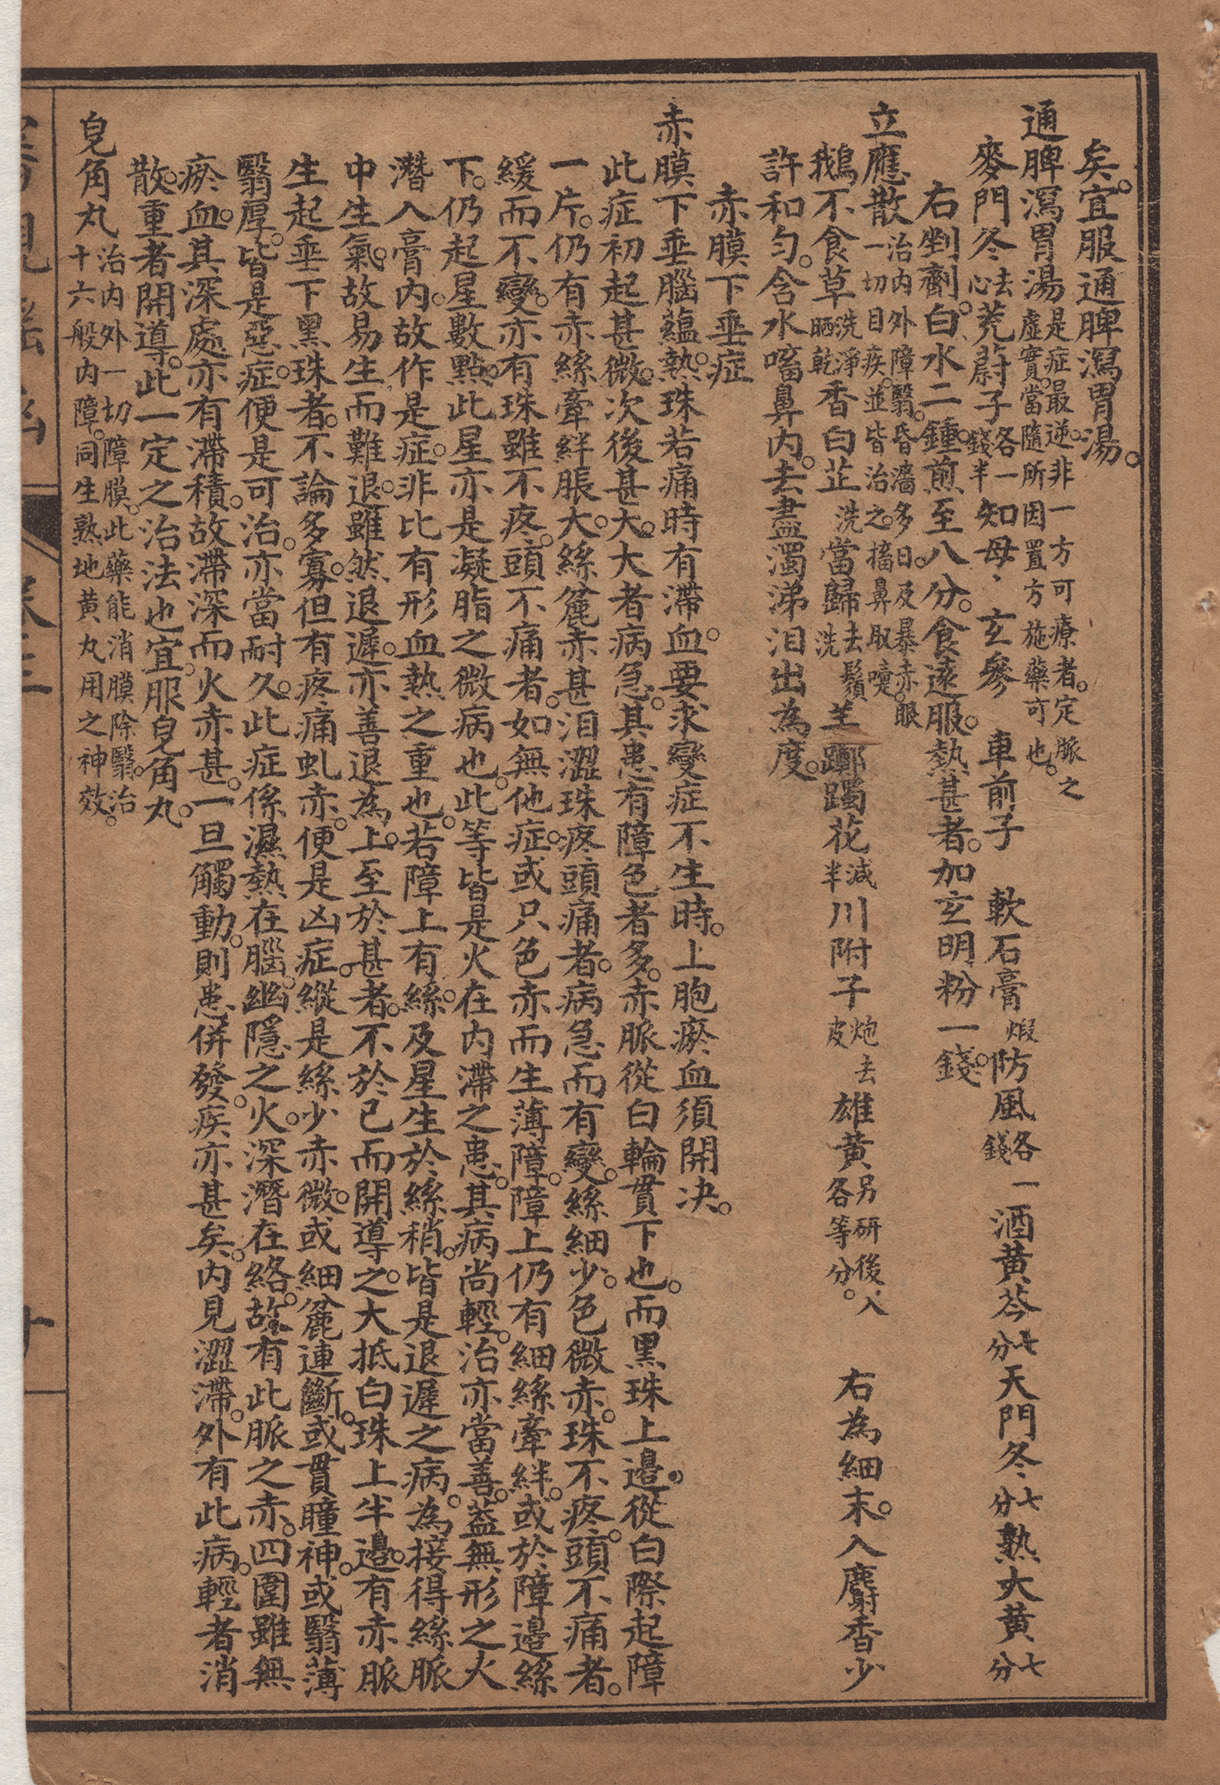 矣。宜服通脾瀉胃湯。
通脾瀉胃湯 是症最逆。非一方可療者。定脈之虛實。當隨所因置方施藥可也。
麥門冬 去心 茺蔚子 各一錢半 知母、玄參 車前子 軟石膏 煆 防風 各一錢 酒黃芩 七分 天門冬 七分 熟大黃 七分
右剉劑。白水二鍾。煎至八分。食遠服。熱甚者。加玄明粉一錢。
立應散 治內外障翳。昏濇多日。及暴赤眼一切目疾。並皆治之。搐鼻取嚏。
鵝不食草 洗淨晒乾 香白芷 洗 當歸 去鬚洗 羊躑躅花 減半 川附子 炮去皮 雄黃 另研後入各等分。 右為細末。入麝香少
許和勻。含水㗜鼻內。去盡濁涕泪出為度。
赤膜下垂症
赤膜下垂腦蘊熱。珠若痛時有滯血。要求變症不生時。上胞瘀血須開決。
此症初起甚微。次後甚大。大者病急。其患有障色者多。赤脈從白輪貫下也。而黑珠上邊。從白際起障
一片。仍有赤絲牽絆。脹大。絲麄赤甚。泪澀珠疼頭痛者。病急而有變。絲細少。色微赤。珠不疼。頭不痛者。
緩而不變。亦有珠雖不疼。頭不痛者。如無他症。或只色赤而生薄障。障上仍有細絲牽絆。或於障邊絲
下。仍起星數點。此星亦是凝脂之微病也。此等皆是火在內滯之患。其病尚輕。治亦當善。蓋無形之火
潛入膏內。故作是症。非比有形血熱之重也。若障上有絲。及星生於絲稍。皆是退遲之病。為接得絲脈
中生氣。故易生而難退。雖然退遲。亦善退為上。至於甚者。不於已而開導之。大抵白珠上半邊。有赤脈
生起垂下黑珠者。不論多寡。但有疼痛虬赤。便是凶症。縱是絲少赤微。或細麄連斷。或貫瞳神。或翳薄
翳厚。皆是惡症。便是可治。亦當耐久。此症係濕熱在腦。幽隱之火。深潛在絡。故有此脈之赤。四圍雖無
瘀血。其深處亦有滯積。故滯深而火赤甚。一旦觸動。則患併發。疾亦甚矣。內見澀滯。外有此病。輕者消
散。重者開導。此一定之治法也。宜服皃角丸。
皃角丸 治內外一切障膜。此藥能消膜除翳。治十六般內障。同生熟地黃丸用之神效。